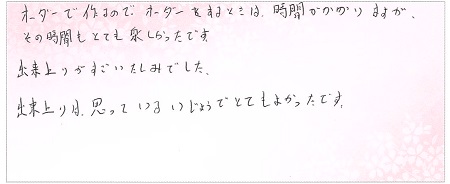 オーダーで作るので、オーダーをするときは、時間がかかりますが、
その時間もとても楽しかったです。
出来上りがすごいたしみでした。
出来上りは、思っているいじょうでとてもよかったです。